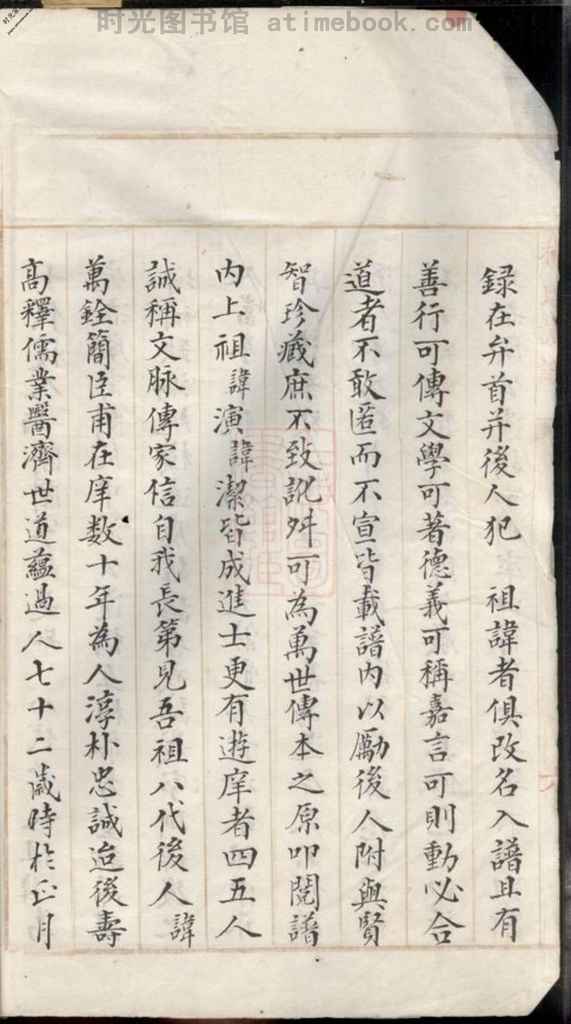 时光图书馆 atimebook.com
録在弁首并後人犯 祖諱者俱改名入譜且有
善行可傳文學可著德義可稱嘉言可則動必合
道者不敢匿而不宣皆載譜内以勵後人附與賢
智珍藏庶不致訛舛可為萬世傳本之原叩閱譜
内上祖諱演諱潔皆成進士更有遊庠者四五人
誠稱文脉傳家信自我長第見吾祖八代後人諱
萬銓簡臣甫在庠数十年為人淳朴忠誠迨後壽
高釋儒業醫濟世道蘊過人七十二歲時於正月